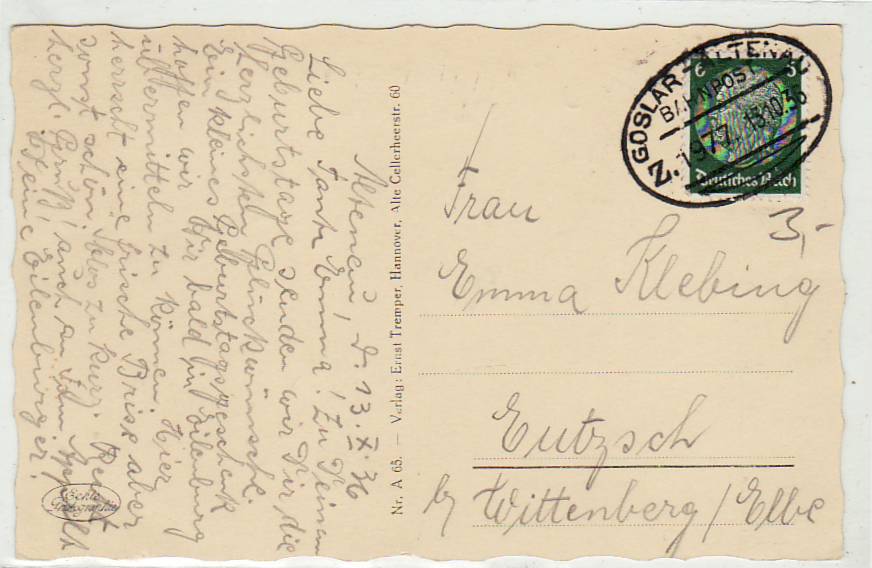 Altenau, d. 13. X. 36
Liebe Tante Emma! Zu Deinem
Geburtstage senden wir Dir die
herzlichsten Glückwünsche.
Ein kleines Geburtstagsgeschenk
hoffen wir Dir bald in Eilenburg
übermitteln zu können. Hier
herrscht eine frische Brise aber
sonst schön. Blos zu kurz.
herzl. Gruß! auch an
Deine Eilenburger!
Echte
Photographie
Nr. A 65. — Verlag: Ernst Tremper, Hannover, Alte Cellerheerstr. 60
GOSLAR-ALTENAU
BAHNPOST
Z. 1977 13.10.36
6
Deutsches Reich
3,-
Frau
Emma Klebing
Eutzsch
b/ Wittenberg/Elbe